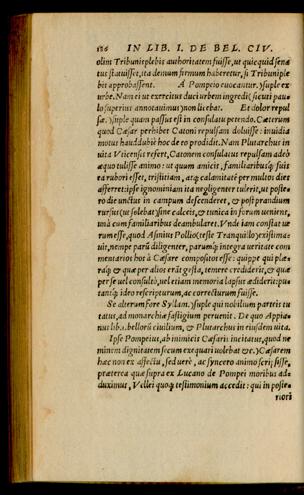 126 IN LIB. I. DE BEL. CIV.
olim Tribuni plebis authoritatem fuisse, ut quicquid senatus
statuisset, ita demum firmum haberetur, si Tribuni plebis
approbassent. A Pompeio euocantur. Ysuple ex
urbe. Nam ei ut exercitus duci urbem ingredi, sicuti paulo
superius annotauimus non licebat. Et dolor repulsæ.
Ysuple quam passus est in consulatu petendo. Cæterum
quod Cæsar perhibet Catoni repulsam doluisse: inuidia
motus haud dubiè hoc de eo prodidit. Nam Plutarchus in
uita Vticensis refert, Catonem consulatus repulsam adeò
æquo tulisse animo: ut quum amicis, familiaribusq; sui
rubori esset, tristitiam, atq; calamitatē per multos dies
afferret: ipse ignominiam ita negligenter tulerit, ut postero
die unctus in campum descenderet, & post prandium
rursus (ut solebat) sine calceis, & tunica in forum ueniens,
unà cum familiaribus deambularet. Vnde iam constat uerum
esse, quod Asinius Pollio (teste Tranquillo) existimauit,
nempe parū diligenter, parumq; integra ueritate commentarios
hos à Cæsare compositos esse: quippe qui pleraq;
& quæ per alios erāt gesta, temerè crediderit, & quæ
per se uel consultò, uel etiam memoria lapsus ædiderit: putatiq;
ideo rescripturum, ac correcturum fuisse.
Se alterum fore Syllam.) suple qui nobilium partes tutatus,
ad monarchiæ fastigium peruenit. De quo Appianus
lib. 1. bellorū ciuilium, & Plutarchus in eiusdem uita.
Ipse Pompeius, ab inimicis Cæsaris incitatus, quod neminem
dignitate secum exequari uolebat &c.) Cæsarem
hæc non ex affectu, sed uerè, ac syncero animo scripsisse,
præterea quæ supra ex Lucano de Pompei moribus adduximus,
Vellei quoq; testimonium accedit: qui in posteriori